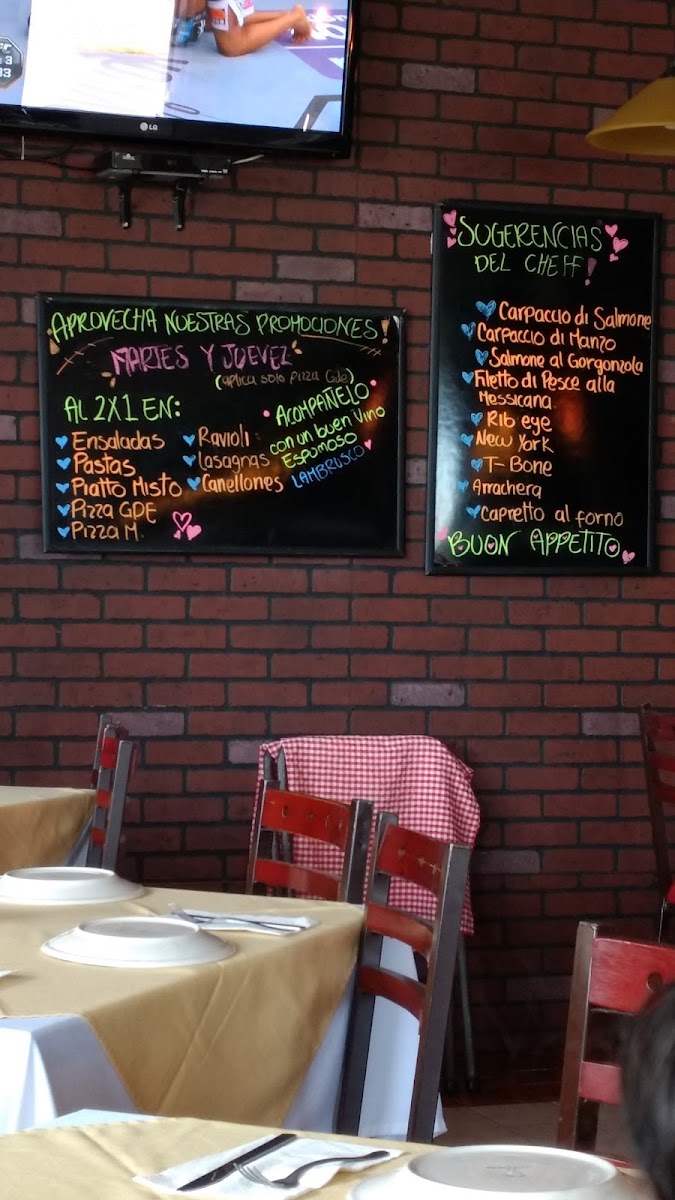 3
33
LG
APROVECHA NUESTRAS PROMOCIONES!
MARTES Y JUEVEZ
(aplica solo pizza Gde)
AL 2X1 EN:
Ensaladas
Pastas
Piatto Misto
Pizza GDE
Pizza M.
Ravioli
Lasagnas
Canellones
ACOMPAÑELO
con un buen Vino
ESPUMOSO
LAMBRUSCO
SUGERENCIAS
DEL CHEFF!
Carpaccio di Salmone
Carpaccio di Manzo
Salmone al Gorgonzola
Filetto di Pesce alla
Messicana
Rib eye
New York
T-Bone
Arrachera
Capretto al forno
BUON APPETITO